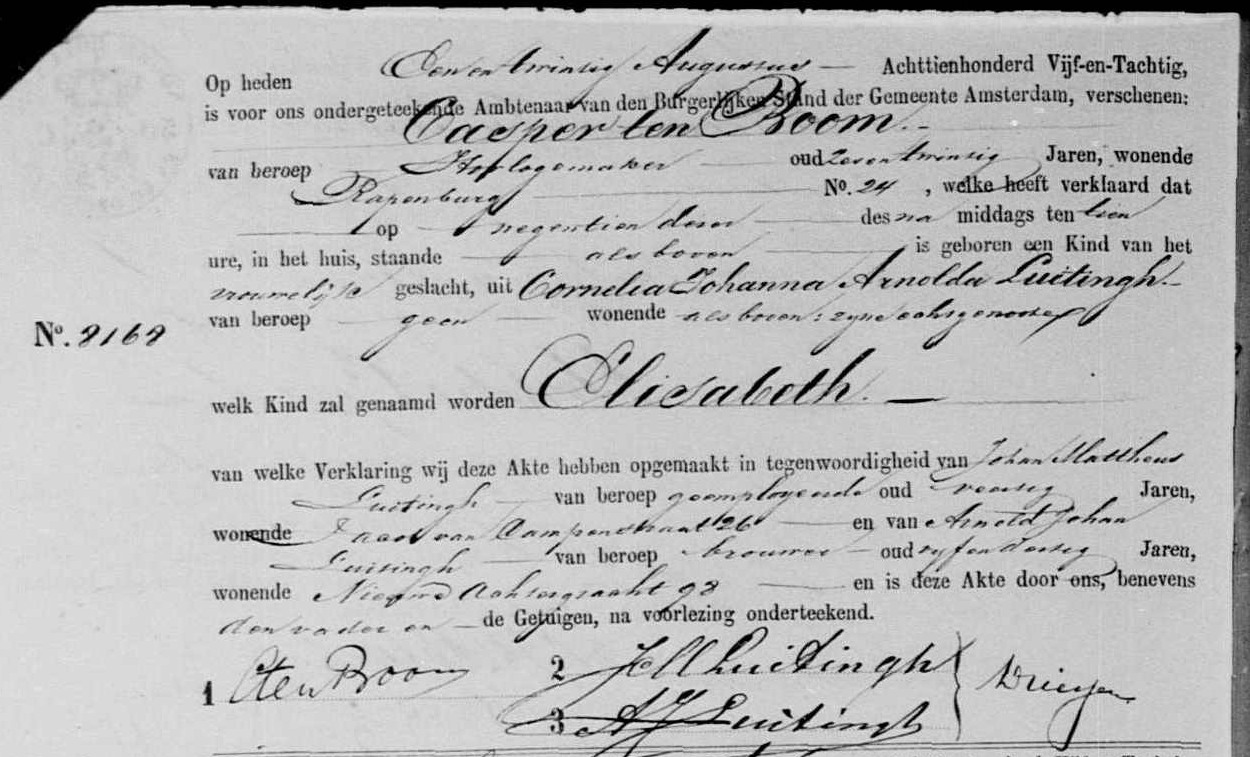 Op heden Een en twintig Augustus — Achttienhonderd Vijf-en-Tachtig,
is voor ons ondergeteekende Ambtenaar van den Burgerlijken Stand der Gemeente Amsterdam, verschenen:
Casper ten Boom. —
van beroep Horlogemaker oud zes en twintig Jaren, wonende
Rapenburg No. 24 , welke heeft verklaard dat
op negentien dezer des na middags ten tien
ure, in het huis, staande als boven is geboren een Kind van het
vrouwelijk geslacht, uit Cornelia Johanna Arnolda Luitingh. —
van beroep geen wonende als boven: zyne echtgenoote
No. 8168
welk Kind zal genaamd worden Elisabeth. —
van welke Verklaring wij deze Akte hebben opgemaakt in tegenwoordigheid van Johan Mattheus
Luitingh van beroep geemployeerde oud veertig Jaren,
wonende Jacob van Campenstraat 26 en van Arnold Johan
Luitingh van beroep brouwer oud vyf en dertig Jaren,
wonende Nieuwe Achtergracht 98 en is deze Akte door ons, benevens
den vader en de Getuigen, na voorlezing onderteekend.
1 CtenBoom 2 Luitingh
3 AJ Luitingh